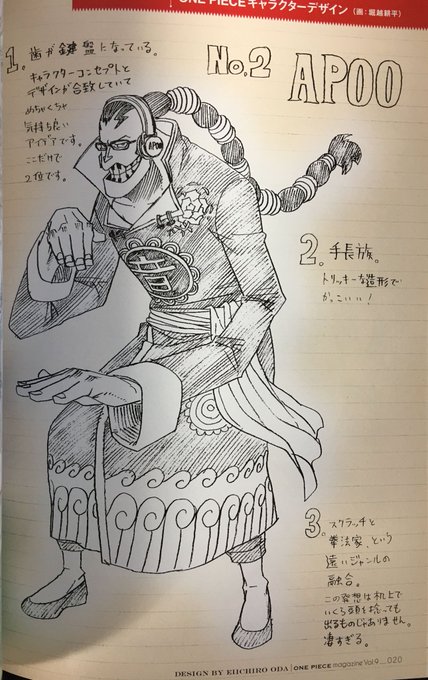 ONE PIECEキャラクターデザイン(画:堀越耕平)
No.2 APOO
1. 歯が鍵盤になっている。
キャラクターコンセプトと
デザインが合致していて
めちゃくちゃ
気持ち良い
アイデアです。
ここだけで
2位です。
APOO
2. 手長族。
トリッキーな造形で
かっこいい!
3. スクラッチと
拳法家、という
遠いジャンルの
融合。
この発想は机上で
いくら頭を捻っても
出るものじゃありません。
凄すぎる。
DESIGN BY EIICHIRO ODA | ONE PIECE magazine Vol.9__020